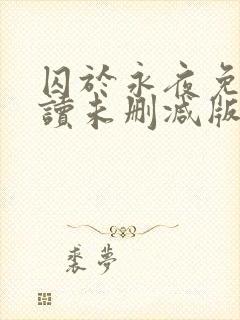 囚於永夜免
讀未刪減版
裘夢